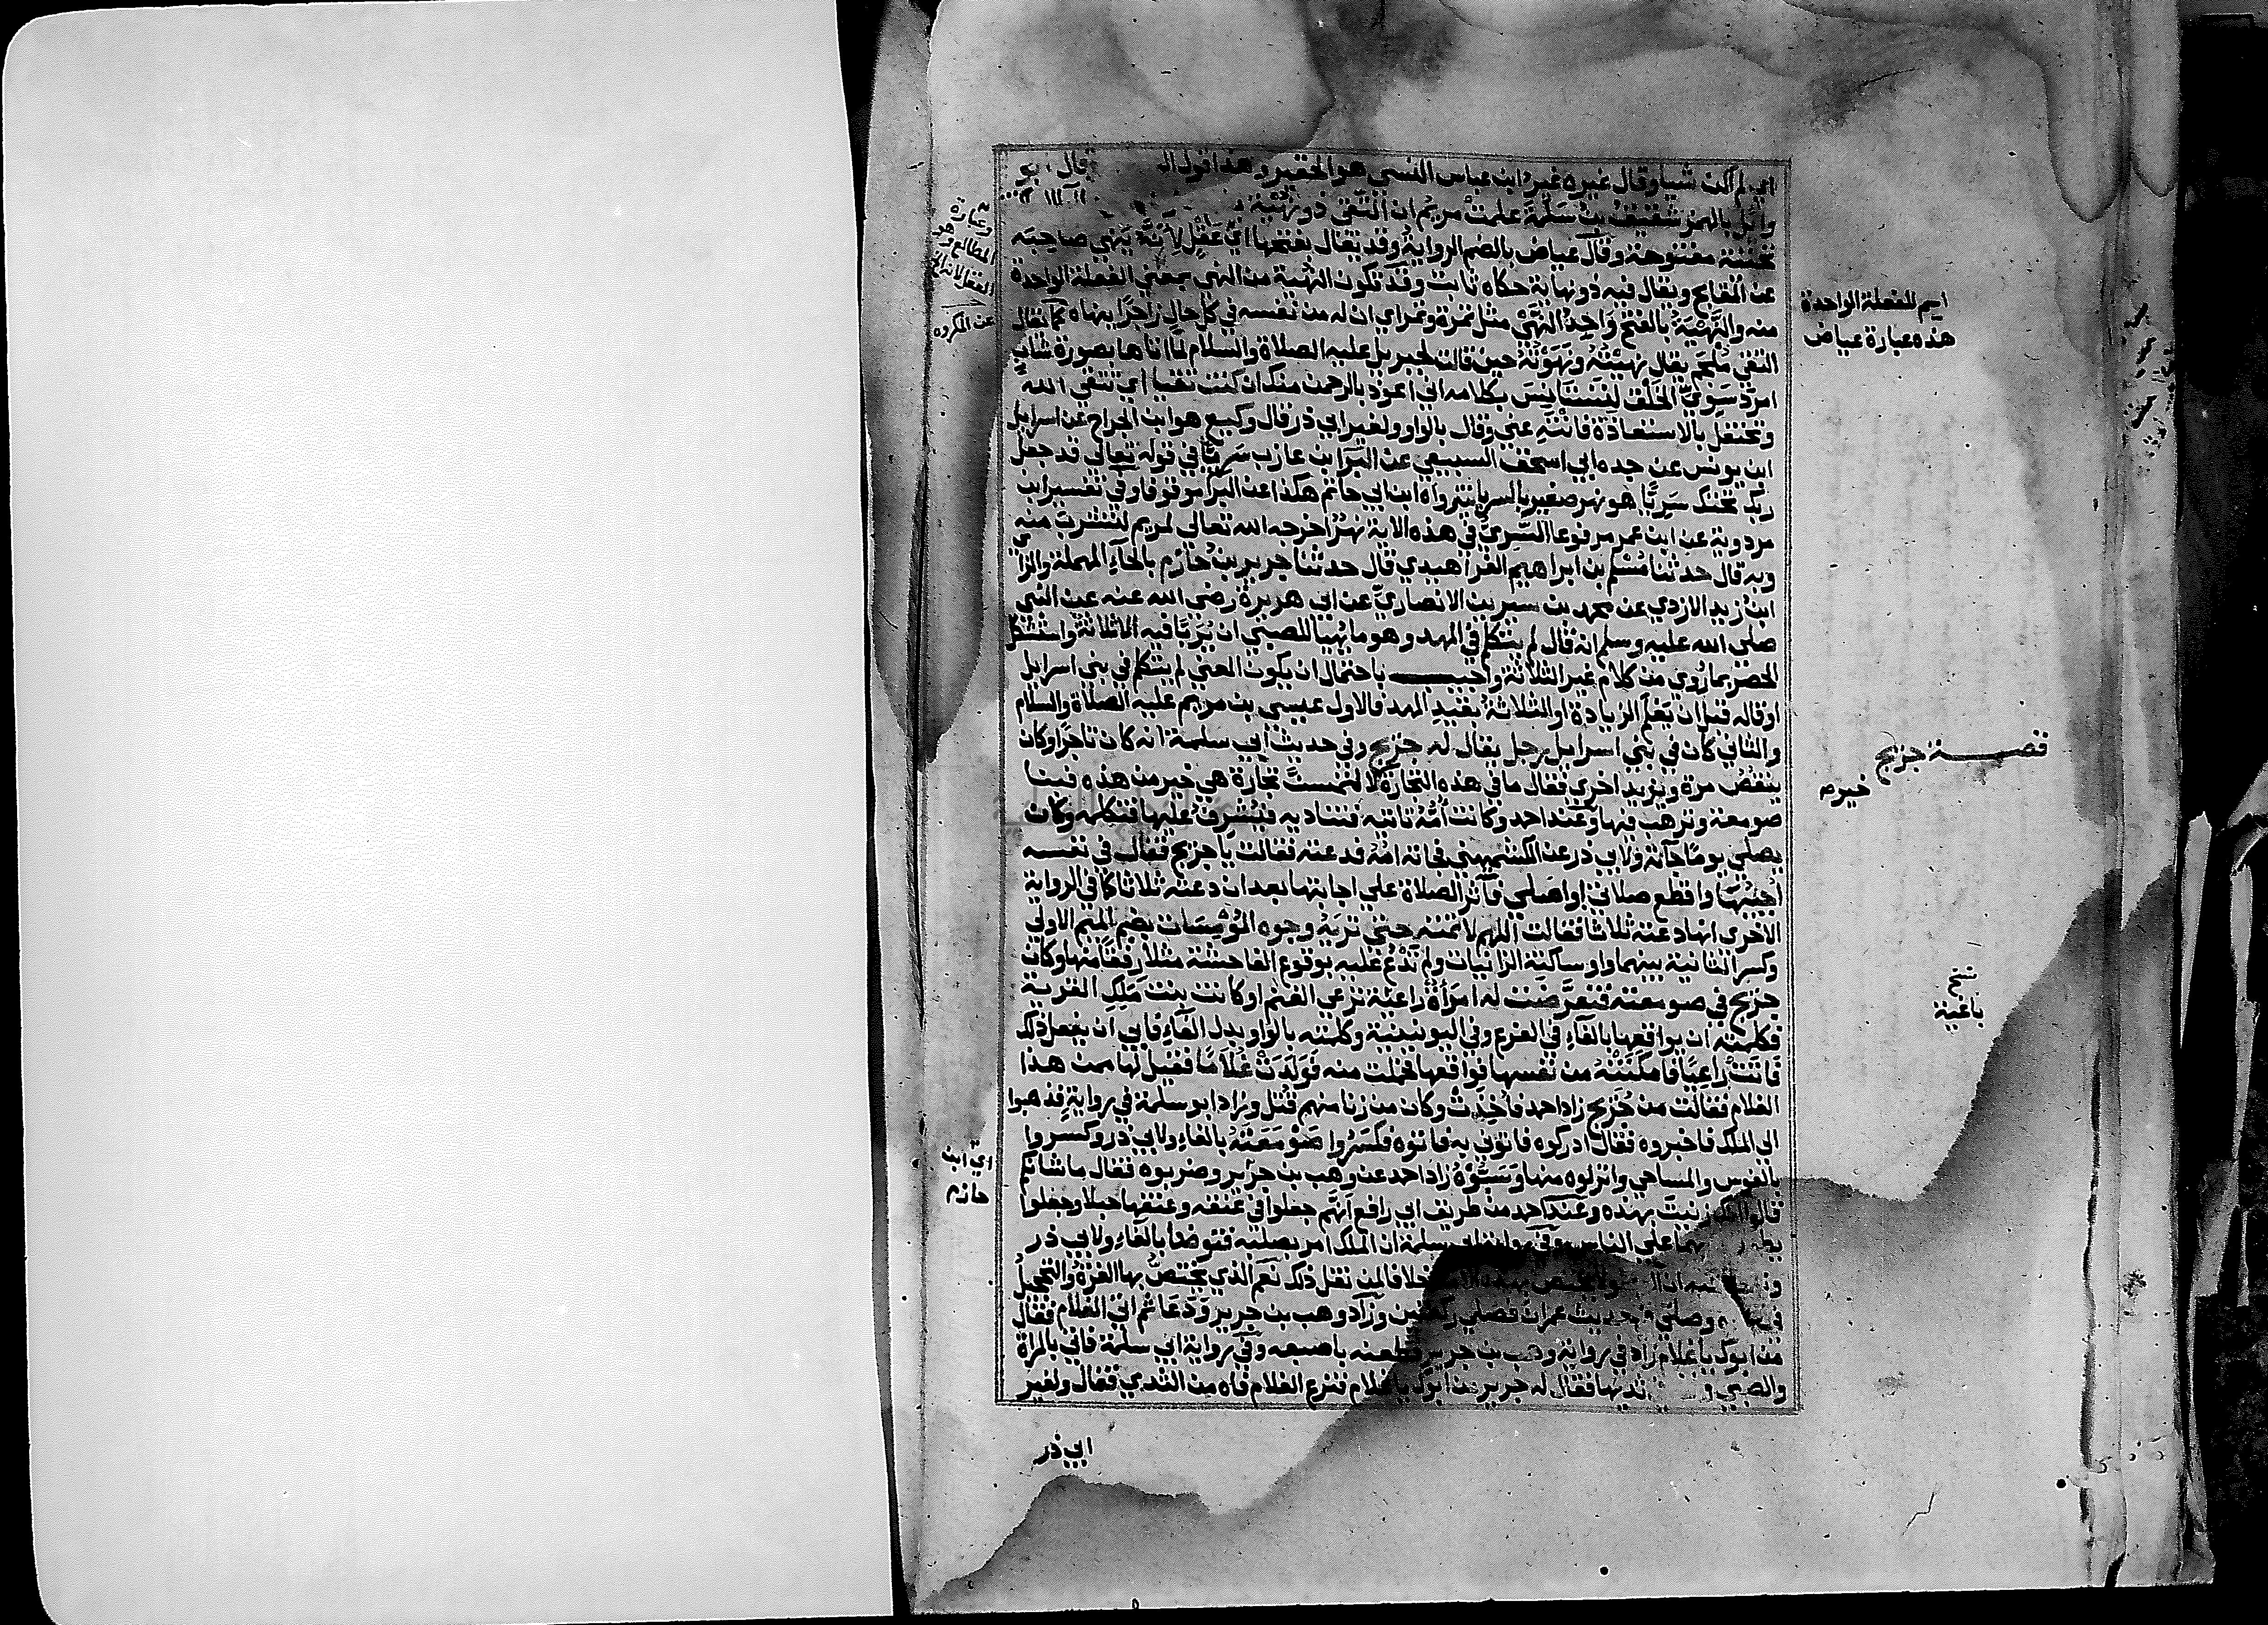 اي لم اكن شيا وقال غيره غير ابن عباس النسي هو الحقير وهذا قول قال ابو
وايل بالهمز شقيق بن سلمة علمت مريم ان التقي ذو نهية
تحتية مفتوحة وقال عياض بالضم الرواية وقد يقال بفتحها اي عقل لانه ينهي صاحبه
عن القبايح ويقال فيه ذو نهاية حكاه ثابت وقد تكون النهية من النهي بمعني الفعلة الواحدة
منه والنهية بالفتح واحد النهي مثل تمرة وتمر اي ان له من نفسه في كل حال زاجرا ينهاه كما يقال
التقي ملجم يقال نهيته ونهوته حين قالت لجبريل عليه الصلاة والسلام لما اتاها بصورة شاب
امرد سوي الخلق لتستانس بكلامه اني اعوذ بالرحمن منك ان كنت تقيا اي تتقي الله
وتحتفل بالاستعاذة فانته عني وقال بالواو ولغير ابي ذر قال وكيع هو ابن الجراح عن اسرايل
ابن يونس عن جده ابي اسحق السبيعي عن البرا بن عازب سريا في قوله تعالي قد جعل
ربك تحتك سريا هو نهر صغير بالسريانية رواه ابن ابي حاتم هكذا عن البرا موقوفا وفي تفسير ابن
مردوية عن ابن عمر مرفوعا السري في هذه الاية نهر اخرجه الله تعالي لمريم لتشرب منه
وبه قال حدثنا مسلم بن ابراهيم الفراهيدي قال حدثنا جرير بن حازم بالحاء المهملة والزاي
ابن زيد الازدي عن محمد بن سيرين الانصاري عن ابي هريرة رضي الله عنه عن النبي
صلي الله عليه وسلم انه قال لم يتكلم في المهد وهو ما يهيا للصبي ان يربا فيه الا ثلاثة واستشكل
الحصر بما روي من كلام غير الثلاثة واجيب باحتمال ان يكون المعني لم يتكلم في بني اسرايل
او قاله قبل ان يعلم الزيادة او الثلاثة بقيد المهد فالاول عيسي بن مريم عليه الصلاة والسلام
والثاني كان في بني اسرايل رجل يقال له جريج وفي حديث ابي سلمة انه كان تاجرا وكان
ينقص مرة ويزيد اخري فقال ما في هذه التجارة لالتمست تجارة هي خير من هذه فبنا
صومعة وترهب فيها وعند احمد وكانت امه تاتيه فتناديه فيشرف عليها فتكلمه وكان
يصلي يوما جآته ولابي ذر عن الكشميهني فجاته امه فدعته فقالت يا جريج فقال في نفسه
اجيبها واقطع صلاتي او اصلي فآثر الصلاة علي اجابتها بعد ان دعته ثلاثا كما في الرواية
الاخري انها دعته ثلاثا فقالت اللهم لا تمته حتي تريه وجوه المومسات بضم الميم الاولي
وكسر الثانية بينهما واو ساكنة الزانيات ولم تدع عليه بوقوع الفاحشة مثلا رفقا منها وكان
جريج في صومعته فتعرضت له امرأة راعية ترعي الغنم او كانت بنت ملك القرية
فكلمته ان يواقعها بالفاء في الفرع وفي اليونينية وكلمته بالواو بدل الفاء فابي ان يفعل ذلك
فاتت راعيا فامكنته من نفسها فواقعها فحملت منه فولدت غلاما فقيل لها ممن هذا
الغلام فقالت من جريج زاد احمد فاخذت وكان من زنا منهم قتل وزاد ابو سلمة في رواية فذهبوا
الي الملك فاخبروه فقال ادركوه فاتوني به فاتوه فكسروا صومعته بالفاء ولابي ذر وكسروا
بالفوس والمساحي وانزلوه منها وسبوه زاد احمد عن وهب بن جرير وضربوه فقال ما شانكم
قالوا انك زنيت بهذه وعند احمد من طريق ابي رافع انهم جعلوا في عنقه وعنقها حبلا وجعلوا
بهما علي الناس وفي رواية ابي سلمة ان الملك امر بصلبه فتوضا بالفاء ولابي ذر
لا يختص خلافا لمن نقل ذلك نعم الذي يختص بها الغرة والتحجيل
وصلي حديث عمران فصلي ركعتين وزاد وهب بن جرير ودعا ثم اتي الغلام فقال
من ابوك يا غلام زاد في رواية وهب بن جرير فطعنه باصبعه وفي رواية ابي سلمة فاتي بالمراة
والصبي ثديها فقال له جرير من ابوك يا غلام فنزع الغلام فاه من الثدي فقال ولغير
ابي ذر
وعبارة
المطالع وهو
العقل لانه
عن المكروه
اسم للفعلة الواحدة
هذه عبارة عياض
قصة جريج
خيرم
نسخ
باغية
اي ابن
حازم